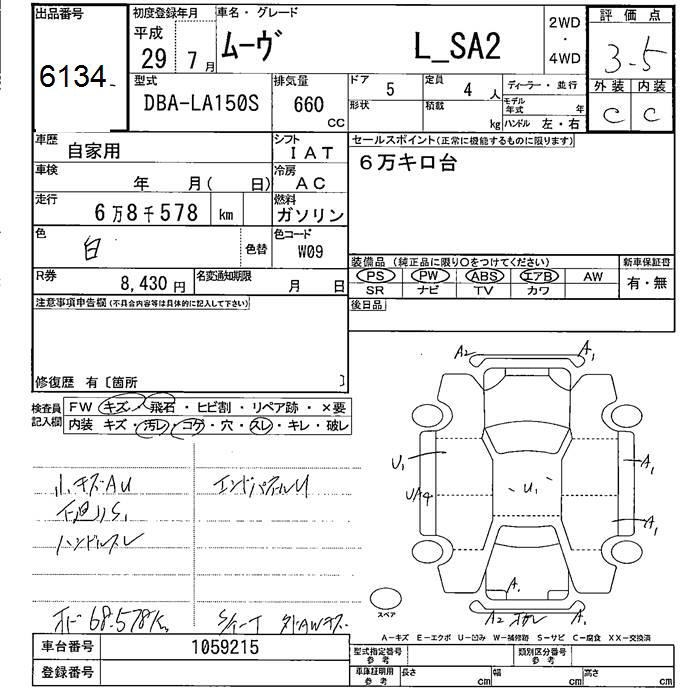 出品番号
6134
初度登録年月
平成
29年 7月
車名・グレード
ムーヴ L_SA2
2WD
・
4WD
評価点
3.5
外装 内装
C C
型式
DBA-LA150S
排気量
660
CC
ドア
5
定員
4人
ディーラー・並行
形状
積載
kg
モデル年式
年
ハンドル 左・右
車歴
自家用
シフト
IAT
セールスポイント(正常に機能するものに限ります)
6万キロ台
車検
年 月( 日)
冷房
AC
走行
6万8千578 km
燃料
ガソリン
色
白
色替
色コード
W09
R券
8,430円
名変通知期限
月 日
装備品(純正品に限り○をつけてください)
PS PW ABS エアB AW
SR ナビ TV カワ
新車保証書
有・無
後日品
注意事項申告欄(不具合内容等は具体的に記入して下さい)
修復歴 有〔箇所 〕
検査員記入欄
FW キズ・飛石・ヒビ割・リペア跡・×要
内装 キズ・汚レ・コゲ・穴・スレ・キレ・破レ
小キズAU
下廻りS1
ハンドルスレ
エンドパネルU
68.578K
A2
A1
U1
A1
U1
A1
A1
A2
A1
スペア
A-キズ E-エクボ U-凹み W-補修跡 S-サビ C-腐食 XX-交換済
車台番号
1059215
登録番号
型式指定番号
参考
類別区分番号
参考
車庫証明用
参考
長さ
cm
幅
cm
高さ
cm